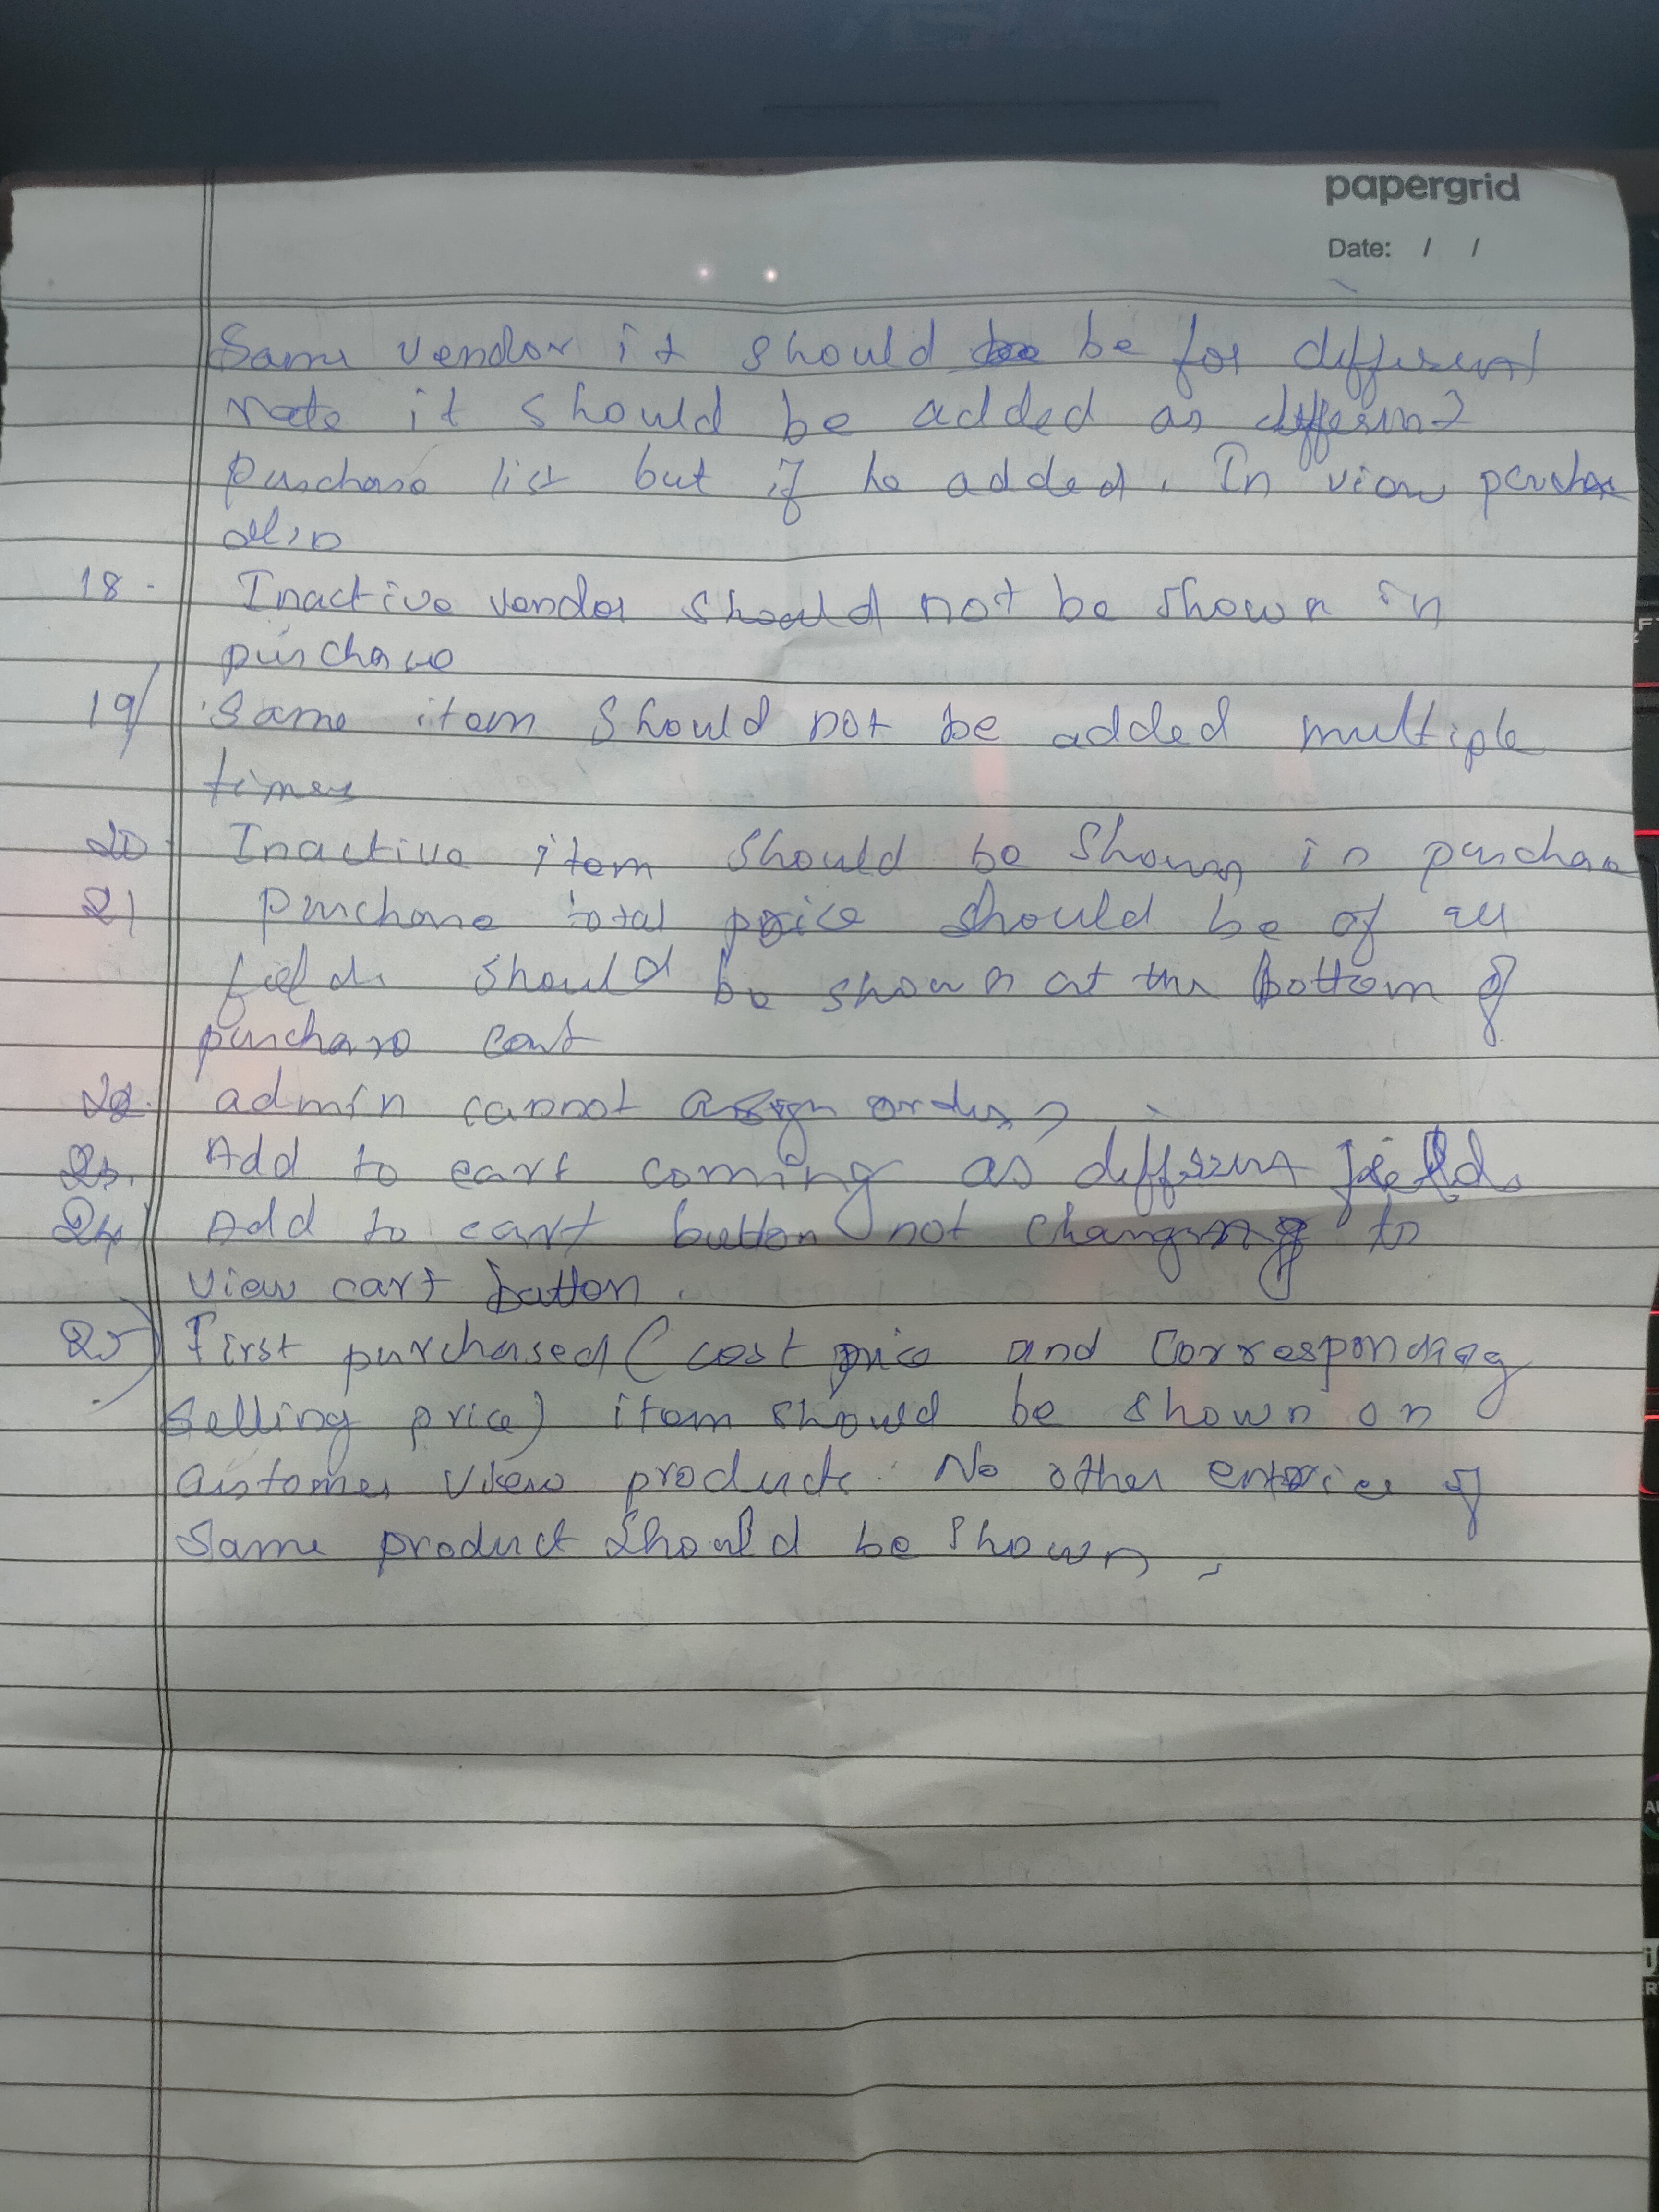 papergrid
Date: / /
Same vendor it should be for different
rate it should be added as different
purchase list but if he added. In view purchase
also
18. Inactive vendor should not be shown in
purchase
19) Same item should not be added multiple
times
20. Inactive item should be shown in purchase
21) purchase total price should be of all
fields should be shown at the bottom of
purchase cart
22. admin cannot assign orders
23. Add to cart coming as different fields
24) Add to cart button not changing to
view cart button.
25) First purchased (cost price and Corresponding
selling price) item should be shown on
Customer view products. No other entries of
same product should be shown.